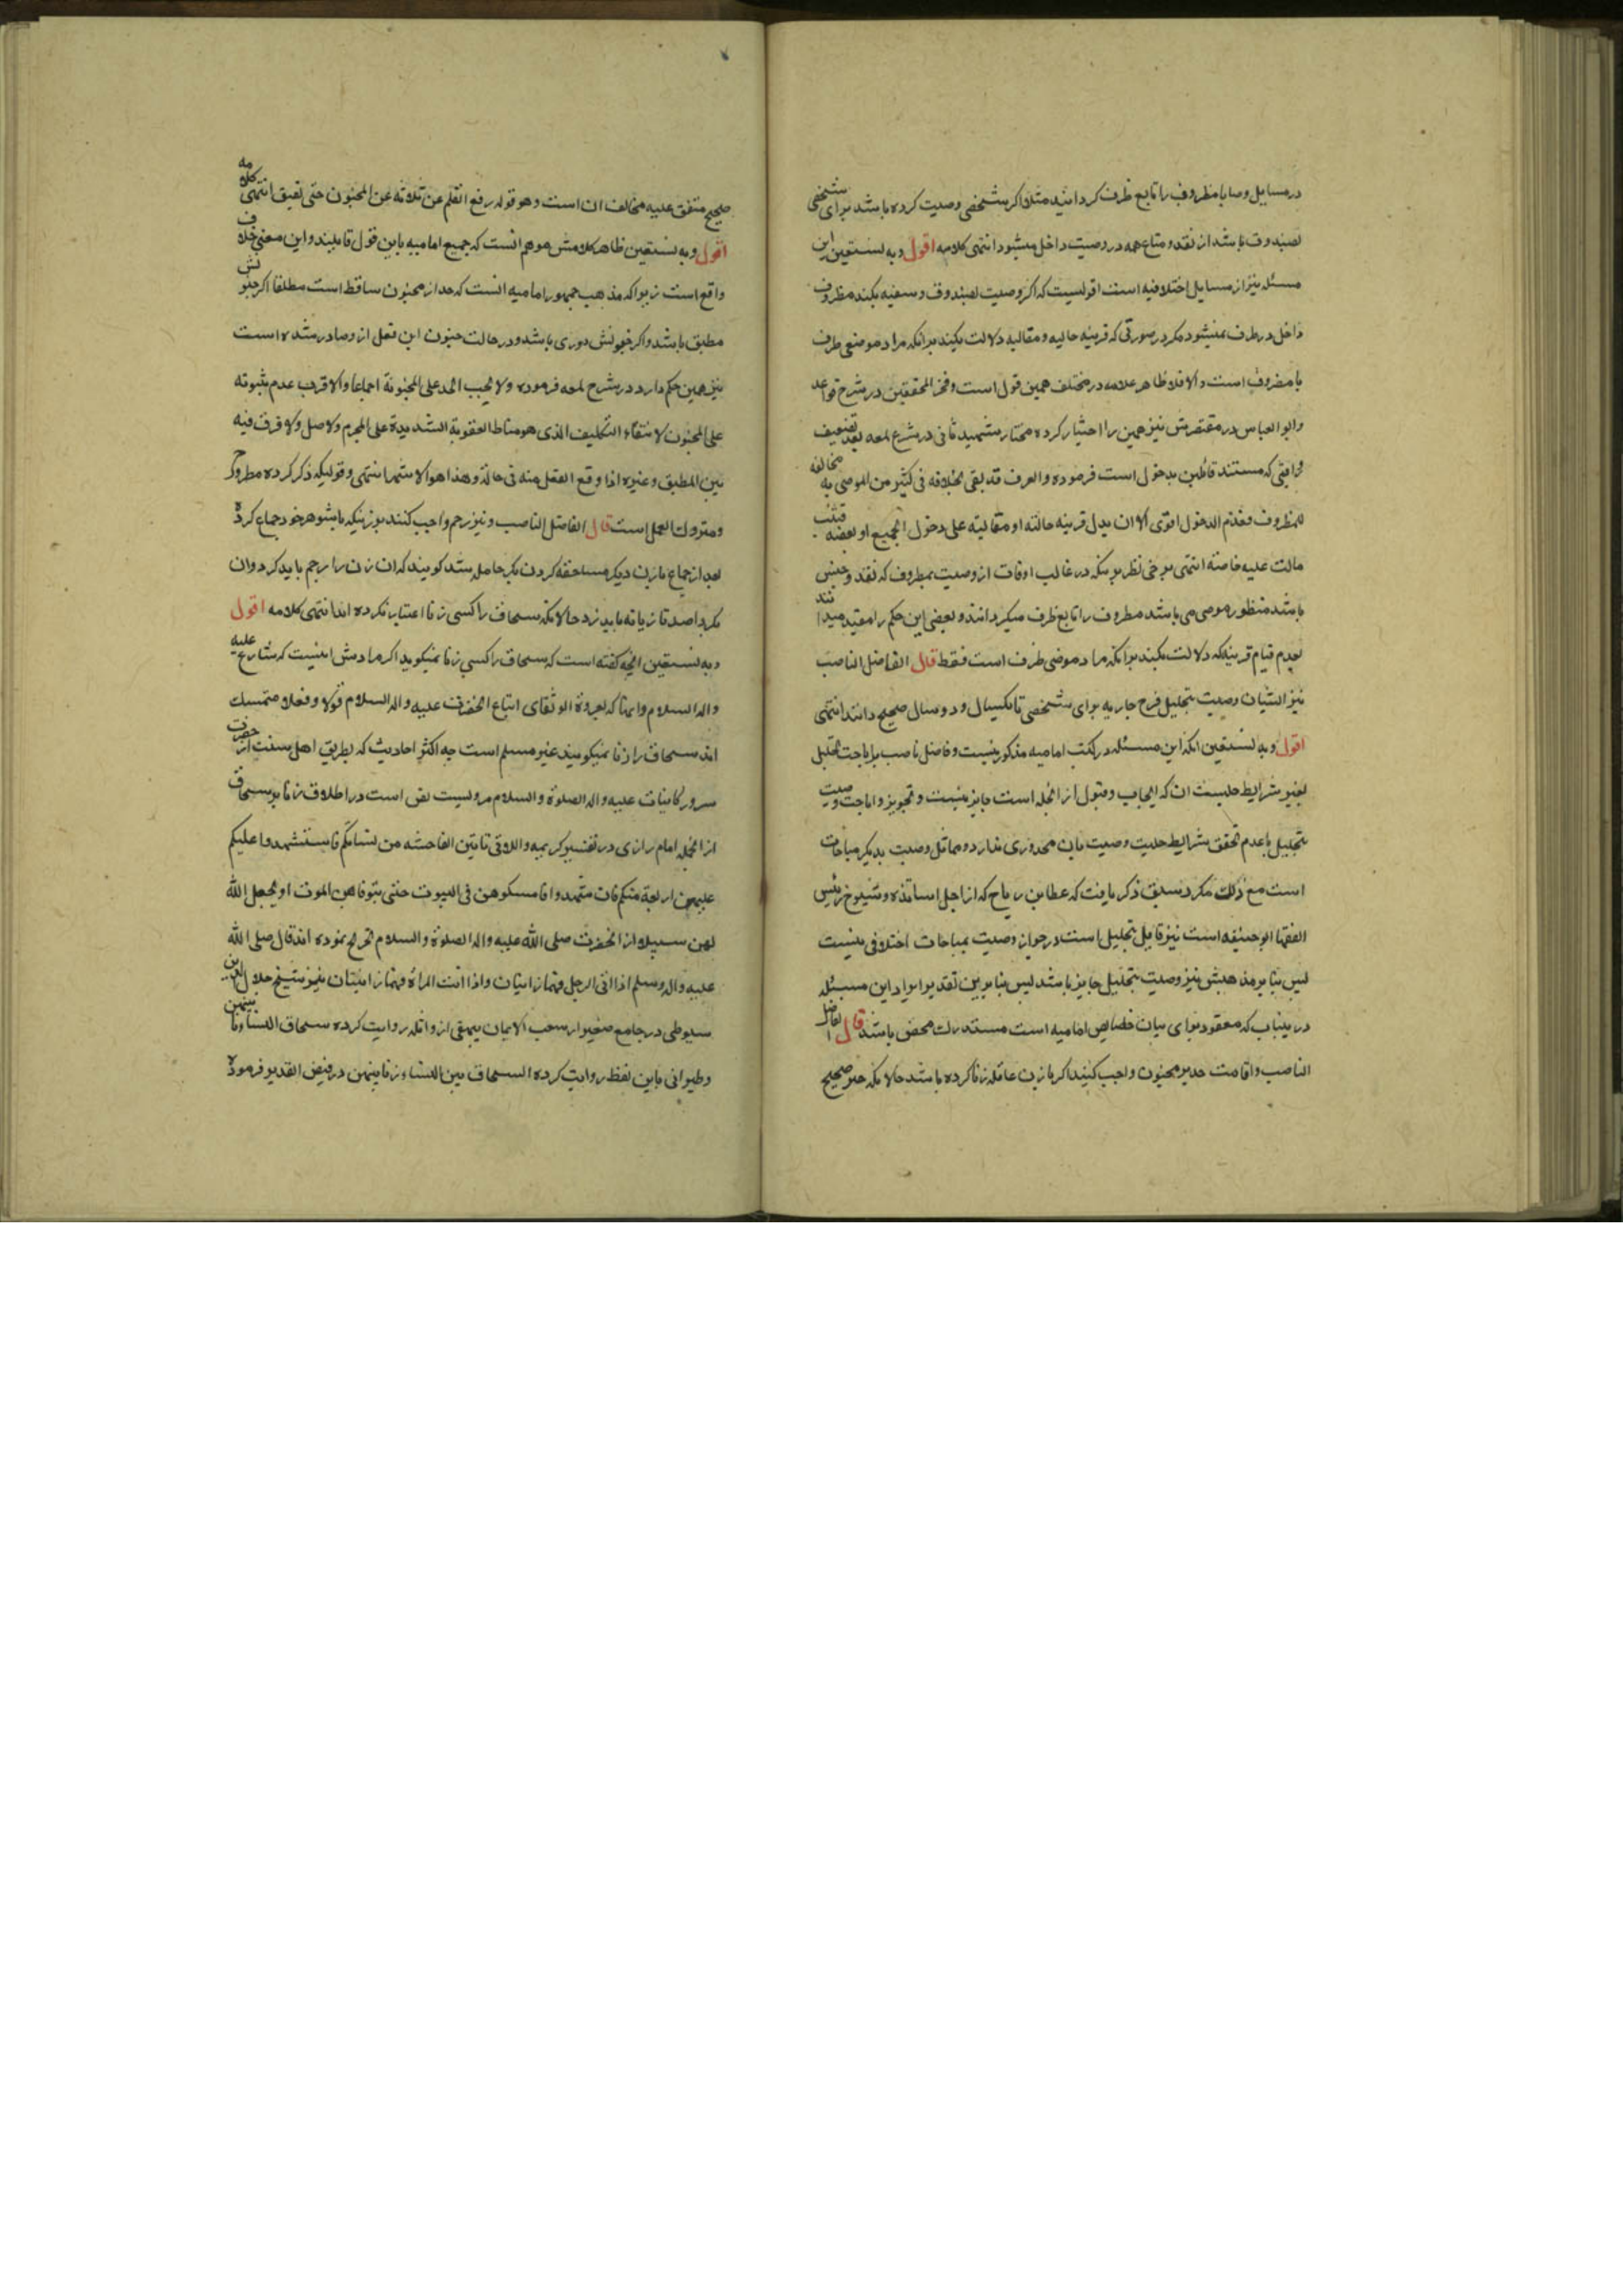 در مسایل وصایا مظروف را تابع ظرف کردانید مثلا اکر شخصی وصیت کرده باشد برای شخصی
بصندوق باشد از نقد و متاع همه در وصیت داخل میشود انتهی کلامه اقول وبه نستعین این
مسئله نیز از مسایل اختلافیه است اقول که اکر وصیت بصندوق و سفینه بکند مظروف
داخل در ظرف نمیشود مکر در صورتی که قرینه حالیه و مقالیه دلالت بکند بر انکه مراد موصی ظرف
با مظروف است والا فلا ظاهر علامه در مختلف همین قول است و فخر المحققین در شرح قواعد
وابو العباس در مقتصرش نیز همین را اختیار کرده مختار شهید ثانی در شرح لمعه بعد تضعیف
که مستند قائلین بدخول است فرموده والعرف قد یقی بخلافه فی کثیر من الموصی به مخالفة
للمظروف فعدم الدخول اقوی الا ان یدل قرینه حالیة او مقالیة علی دخول الجمیع او بعضه فیثبت
مادلت علیه خاصة انتهی نظر در غالب اوقات از وصیت بمظروف که نقد و جنس
باشد منظور موصی می باشد مظروف را تابع ظرف میکردانند و بعضی این حکم را مقید میدانند
بعدم قیام قرینه که دلالت بکند بر انکه مراد موصی ظرف است فقط قال الفاضل الناصب
نیز ایشان وصیت بتحلیل فرج جاریه برای شخصی تا یکسال و دو سال صحیح دانند انتهی
اقول وبه نستعین انکه این مسئله در کتب امامیه مذکور نیست و فاضل ناصب براباحت تحلیل
بغیر شرایط حلیت ان که ایجاب و قبول از انجمله است جایز نیست و تجویز و اباحت وصیت
بتحلیل با عدم تحقق شرایط حلیت وصیت بان محذوری ندارد و مماثل وصیت بدیکر مباحات
است مع ذلک مکرد سبق ذکر یافت که عطا بن رباح که از اجل اساتذه و شیوخ رئیس
الفقها ابو حنیفه است نیز قایل بتحلیل است و در جواز وصیت بمباحات اختلافی نیست
پس بنا بر مذهبش نیز وصیت بتحلیل جایز باشد پس بنا برین تقدیر ایراد این مسئله
درینباب که معقود برای بیان خصایص امامیه است مستدرک محض باشد قال الفاضل
الناصب و اقامت حد بر مجنون واجب کنند اکر بازن عاقله زنا کرده باشد حالانکه خبر صحیح
صحیح متفق علیه مخالف ان است وهو قوله رفع القلم عن ثلاثة عن المجنون حتی یفیق انتهی کلامه
اقول وبه نستعین ظاهر کلامش موهم انست که جمیع امامیه باین قول قایلند و این معنی خلاف
واقع است زیراکه مذهب جمهور امامیه انست که حد از مجنون ساقط است مطلقا اکر جنونش
مطبق باشد و اکر جنونش دوری باشد و در حالت جنون این فعل ازو صادر شده است
نیز همین حکم دارد در شرح لمعه فرموده ولا یجب الحد علی المجنونة اجماعا والاقرب عدم ثبوته
علی المجنون لانتفاء التکلیف الذی هو مناط العقوبة الشدیدة علی المحرم والاصل ولا فرق فیه
بین المطبق وغیره اذا وقع الفعل منه فی حالة وهذا هو الاشهر انتهی و قولیکه ذکر کرده مطروح
ومتروک العمل است قال الفاضل الناصب و نیز رجم واجب کنند بر زنیکه با شوهر خود جماع کرد
بعد از جماع بازن دیکر مساحقه کردن بکر حامله شد کویند که ان زن را رجم باید کرد وان
بکر را صد تازیانه باید زد حالانکه سحاق را کسی زنا اعتبار نکرده اند انتهی کلامه اقول
وبه نستعین انچه کفته است که سحاق را کسی زنا نمیکوید اکر مرادش اینست که شارع علیه
واله السلام و ایمه که بعروة الوثقای اتباع انحضرت علیه واله السلام قولا و فعلا متمسک
اند سحاق را زنا نمیکویند غیر مسلم است چه اکثر احادیث که بطریق اهل سنت از حضرت
سرور کاینات علیه واله الصلوة والسلام مرویست نص است در اطلاق زنا بر سحاق
از انجمله امام رازی در تفسیر کریمه واللاتی یاتین الفاحشه من نسائکم فاستشهدوا علیکم
علیهن اربعة منکم فان شهدوا فامسکوهن فی البیوت حتی یتوفاهن الموت او یجعل الله
لهن سبیلا از انحضرت صلی الله علیه واله الصلوة والسلام تخریج نموده انه قال صلی الله
علیه واله وسلم اذا اتی الرجل فهما زانیان واذا اتت المراة فهما زانیتان نیز شیخ جلال الدین
سیوطی در جامع صغیر از شعب الایمان بیهقی از واثله روایت کرده سحاق النساء زنا بینهن
وطبرانی باین لفظ روایت کرده السحاق بین النساء زنا بینهن در فیض القدیر فرموده